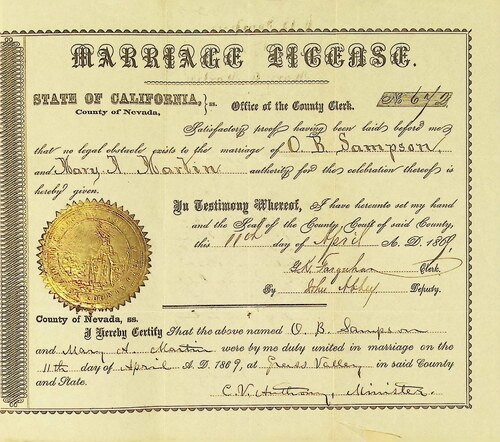 MARRIAGE LICENSE.
STATE OF CALIFORNIA, }ss. Office of the County Clerk. No 672
County of Nevada,
Satisfactory proof having been laid before me
that no legal obstacle exists to the marriage of O. B. Sampson,
and Mary A. Martin authority for the celebration thereof is
hereby given.
In Testimony Whereof, I have hereunto set my hand
and the Seal of the County Court of said County,
this 11th day of April A. D. 1869,
G.K. Farquhar Clerk,
By John Deputy.
County of Nevada, ss.
I Hereby Certify That the above named O. B. Sampson
and Mary A. Martin were by me duly united in marriage on the
11th day of April A. D. 1869, at Grass Valley in said County
and State.
C. V. Anthony, Minister.